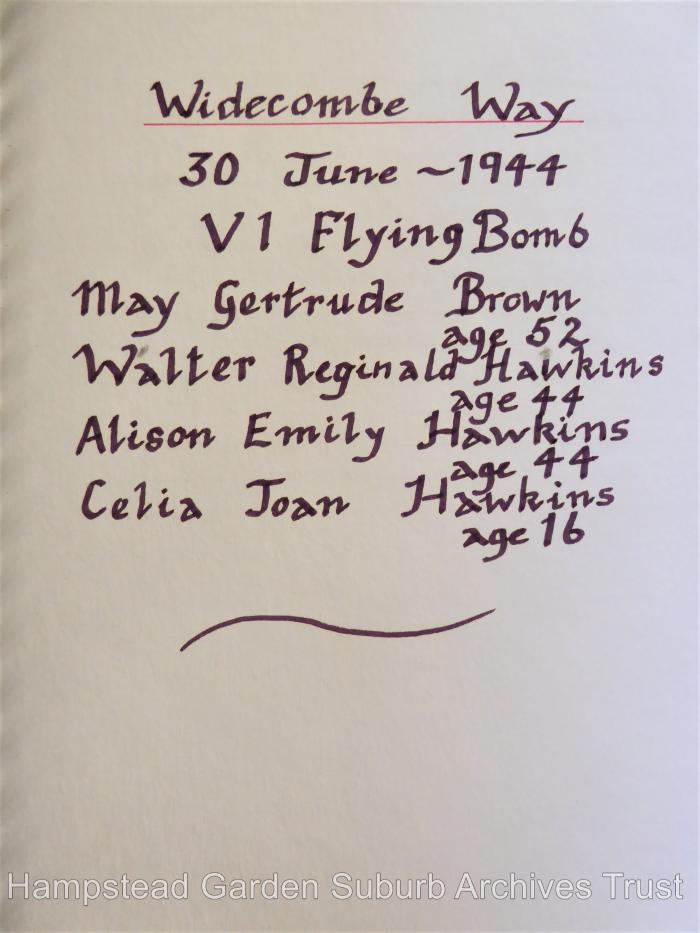 Widecombe Way
30 June ~1944
V1 Flying Bomb
May Gertrude Brown
age 52
Walter Reginald Hawkins
age 44
Alison Emily Hawkins
age 44
Celia Joan Hawkins
age 16
Hampstead Garden Suburb Archives Trust